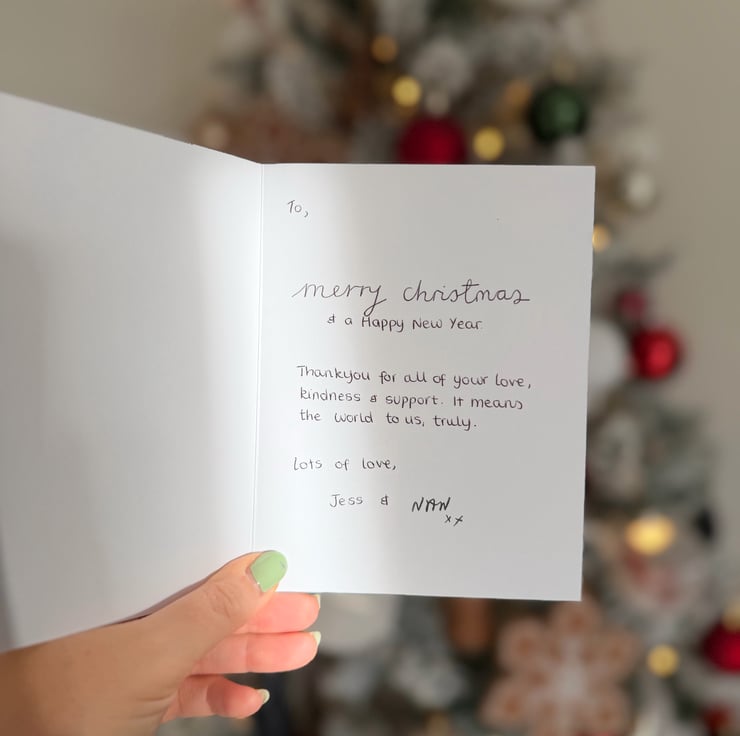 To,
merry christmas
& a Happy New Year.
Thankyou for all of your love,
kindness & support. It means
the world to us, truly.
Lots of love,
Jess & NAN
xx